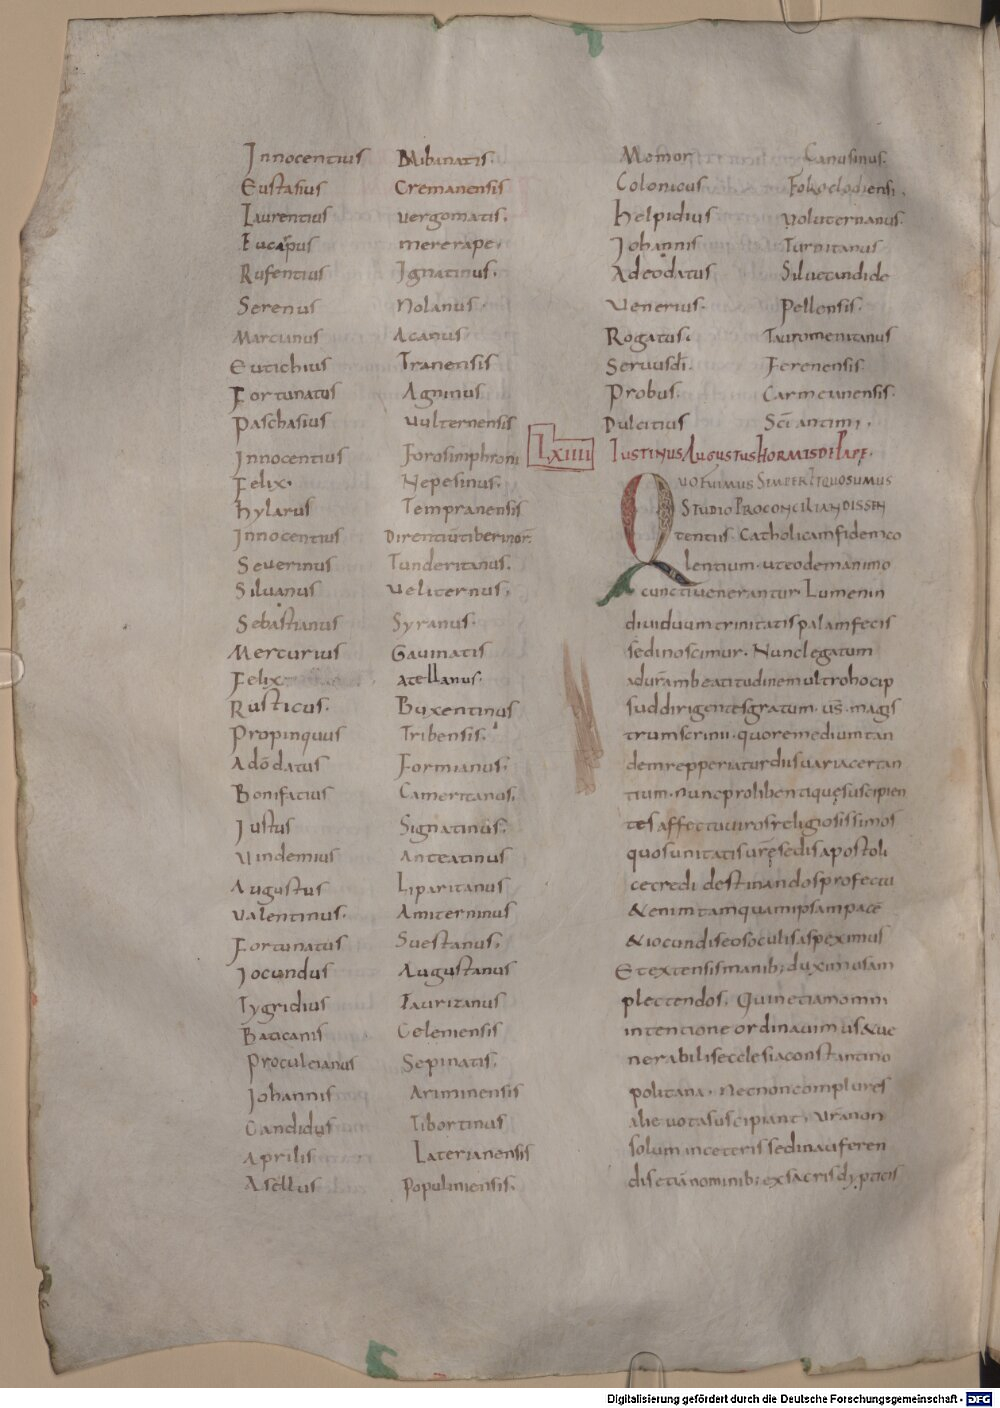 Innocentius Mibanatis.
Eustasius Cremanensis
Laurentius vergomatis.
Eucarpus mererape.
Rufentius Ignatinus.
Serenus Nolanus.
Martianus Acanus.
Eutichius Tranensis
Fortunatus Agninus
Paschasius vulternensis
Innocentius Forosimphroni
Felix. Nepesinus.
hylarus Tempranensis
Innocentius
Severinus Tunderitanus.
Silvanus veliternus.
Sebastianus Syranus.
Mercurius Gavinatis
Felix atellanus.
Rusticus. Buxentinus
Propinquus Tribensis.
Adōdatus Formianus.
Bonifatius Cameritanus.
Iustus Signatinus.
Vindemius Anteatinus
Augustus Liparitanus
valentinus. Amiterninus
Fortunatus Suestanus.
Iocundus Augustanus
Tygridius Tauritanus
Baticanis Celeniensis
Proculeianus Sepinatis.
Iohannis Ariminensis
Candidus Tibortinus
Aprilis Laterianensis
Asellus Populiniensis.
Memor Canusinus.
Colonicus
helpidius voluternanus.
Iohannis Turnitanus
Adeodatus Siluecandide
venerius. Pellensis.
Rogatus. Tauromenitanus
Seruusdi. Ferenensis.
Probus. Carmeianensis.
Dulcitius Sci antimi.
LXIIII IUSTINUS AUGUSTUS HORMISDE PAPE.
QUO FUIMUS SEMPER ET QUO SUMUS
STUDIO PROCONCILIANDISSEN
tentiis. Catholicamfidemco
lentium. uteodemanimo
cunctiuenerantur. Lumenin
diuiduumtrinitatispalamfecis
sedinoscimur. Nunclegatum
aduram beatitudinemultrohocip
suddirigentesgratum. us. magis
trumscrinii. quoremediumtan
demrepperiaturdiusuariacertan
tium. nuncprolibentiquęsuscipien
tesaffectuuirosreligiosissimos
quosunitatisurēsedisapostoli
cecredi destinandosprofecui
&enimtamquamipsampacē
&iocundiseosoculisaspeximus
Etextensismanib; duximusam
plectendos. Quinetiamomni
intentioneordinauimus&ue
nerabilisecclesiaconstantino
politana. necnoncomplures
alieuotasuscipiant. uranon
soluminceterissedinauferen
disetiānominib; exsacrisdypticis
Digitalisierung gefördert durch die Deutsche Forschungsgemeinschaft - DFG